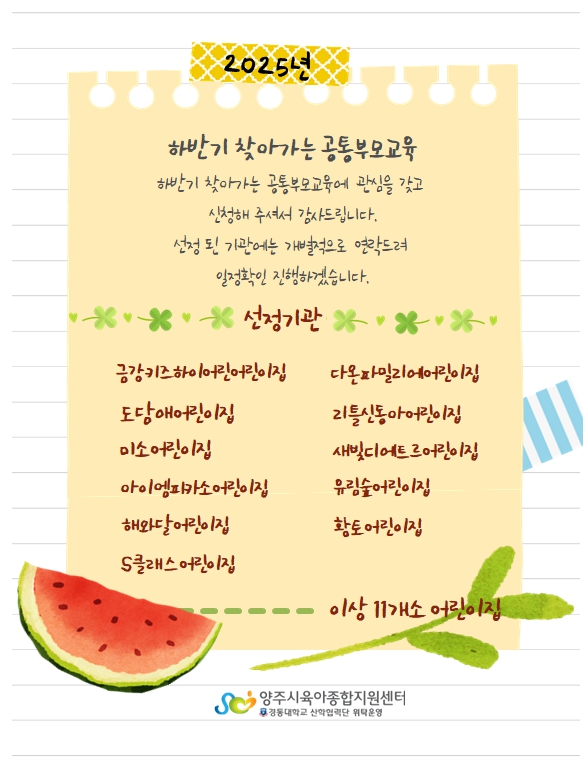 2025년
하반기 찾아가는 공통부모교육
하반기 찾아가는 공통부모교육에 관심을 갖고
신청해 주셔서 감사드립니다.
선정 된 기관에는 개별적으로 연락드려
일정확인 진행하겠습니다.
선정기관
금강키즈하이어린어린이집
다온파밀리에어린이집
도담애어린이집
리틀신동아어린이집
미소어린이집
새빛디에트르어린이집
아이엠피카소어린이집
유림숲어린이집
해와달어린이집
황토어린이집
S클래스어린이집
이상 11개소 어린이집
양주시육아종합지원센터
경동대학교 산학협력단 위탁운영